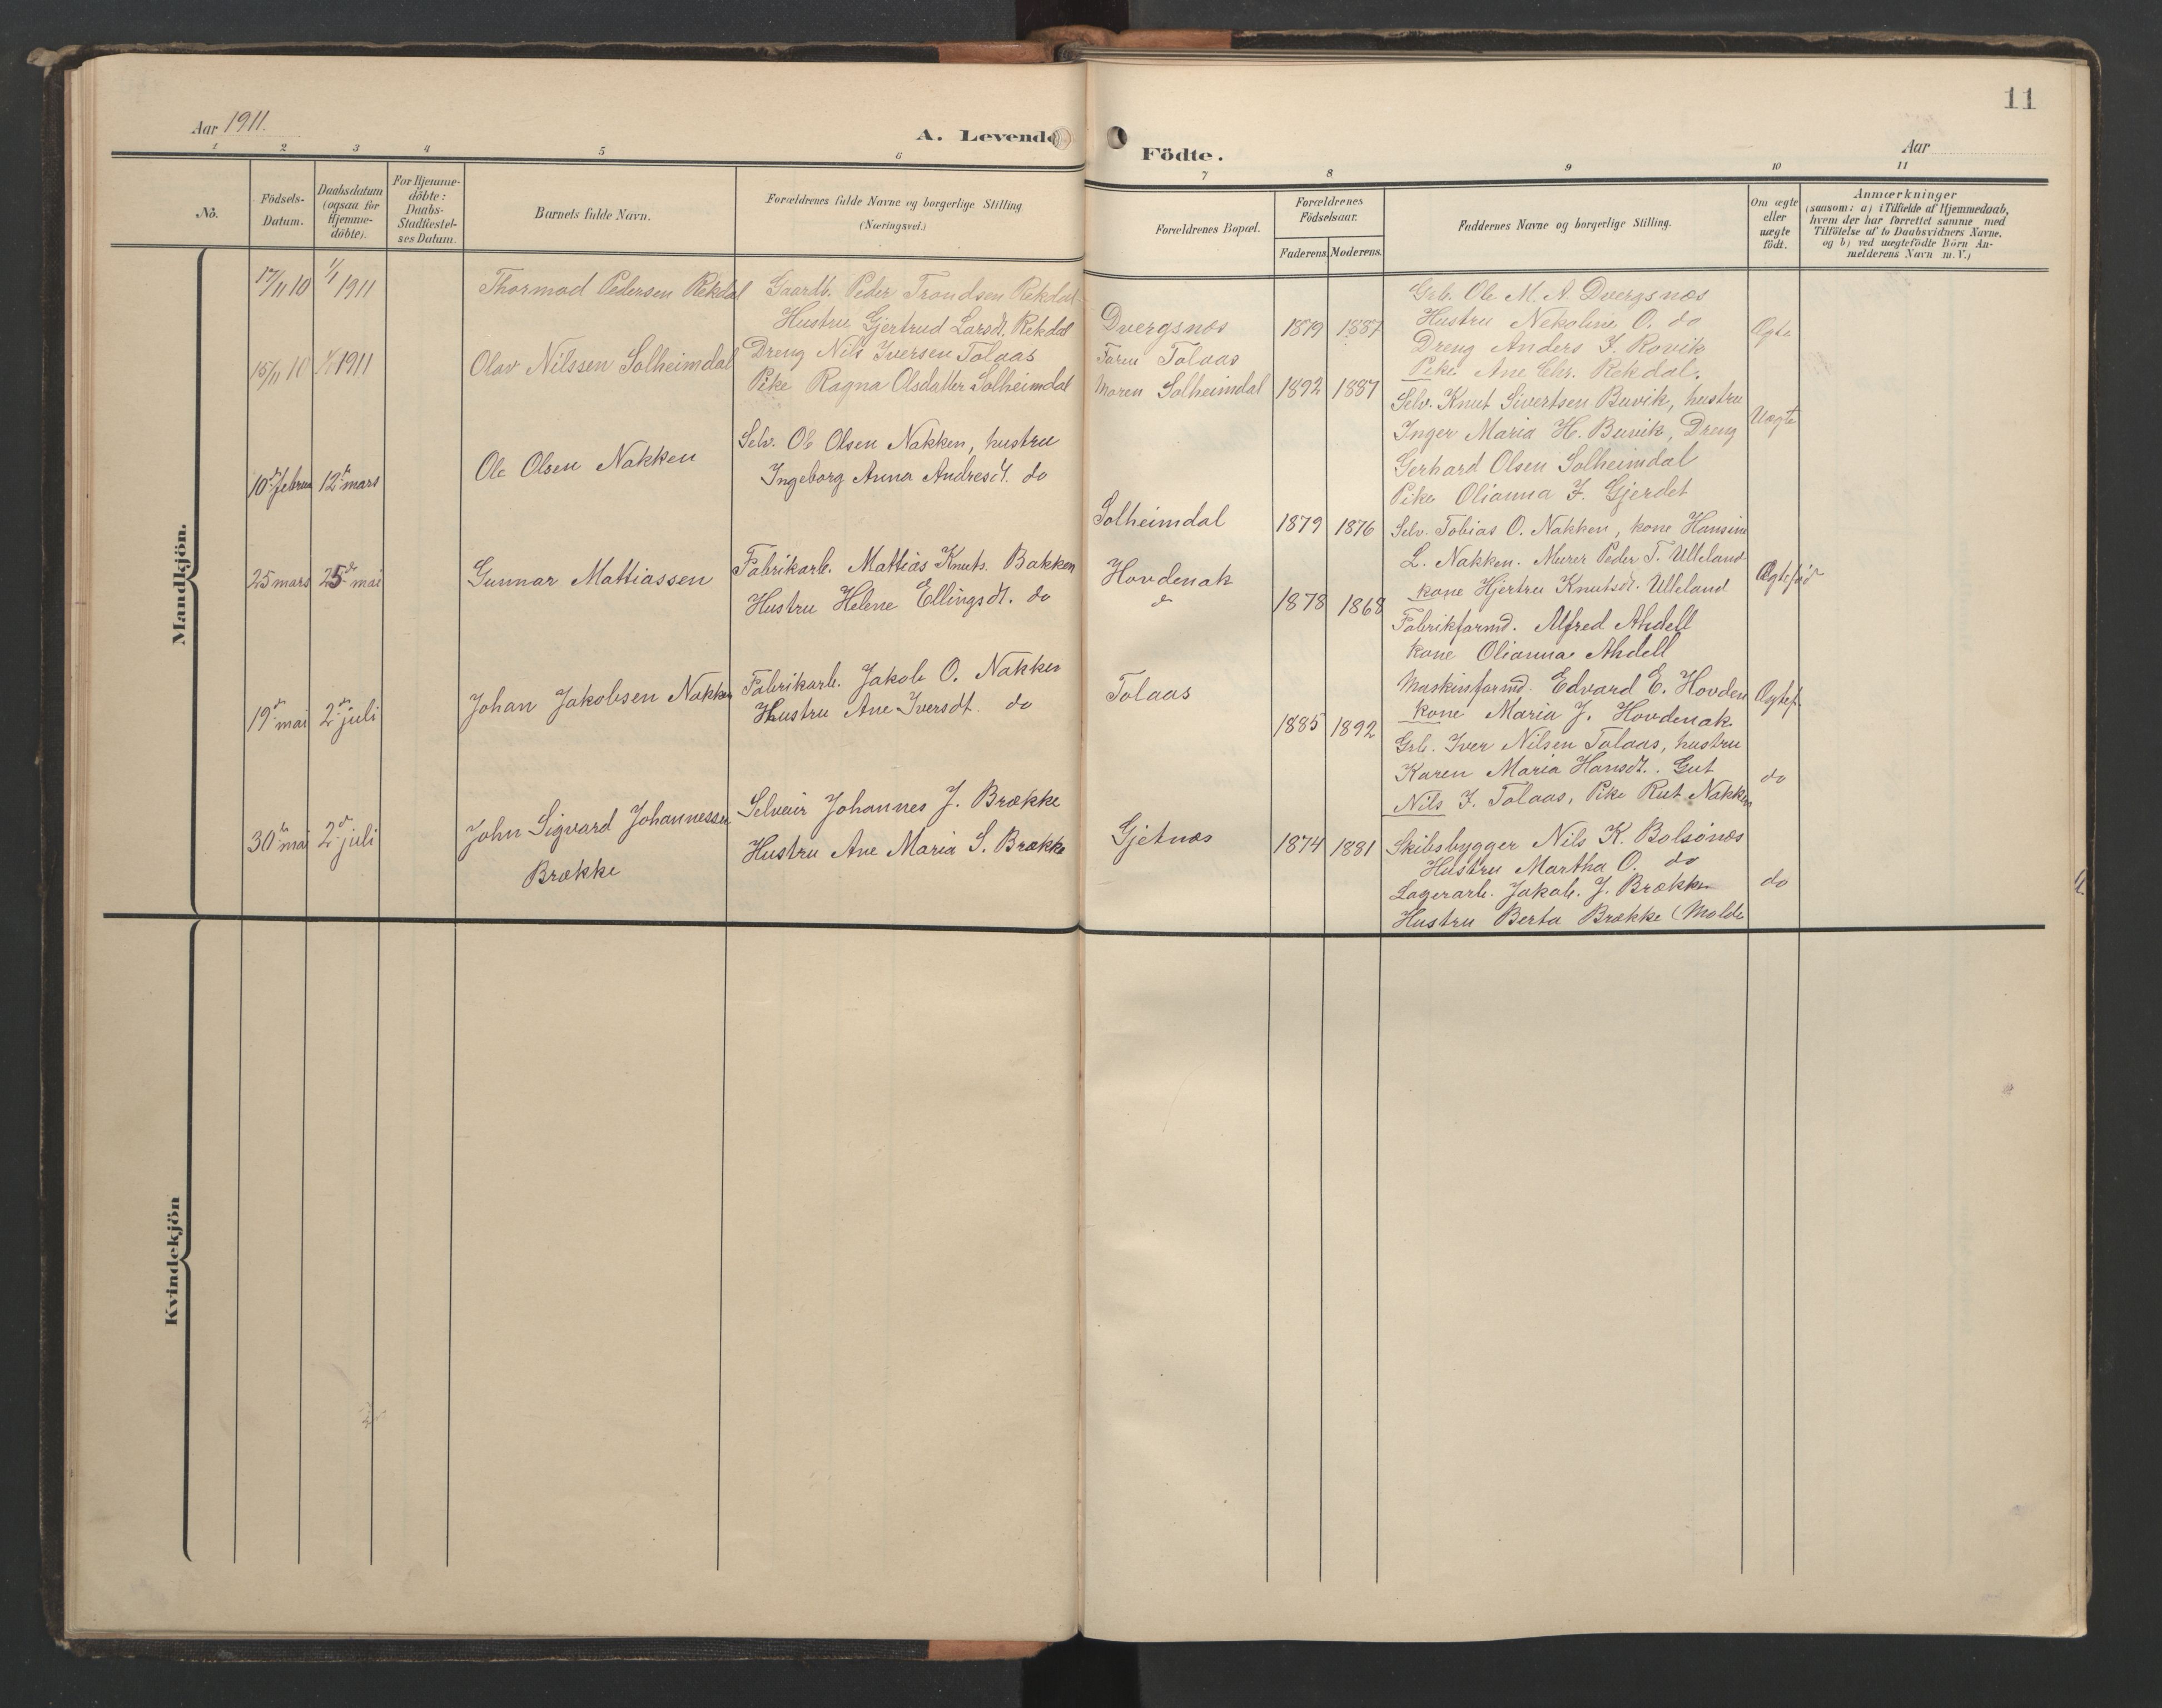 11
Aar 1911.
A. Levende
Födte.
Aar
1 2 3 4 5 6 7 8 9 10 11
No.
Födsels-
Datum.
Daabsdatum
(ogsaa for
Hjemme-
döbte).
For Hjemme-
döbte:
Daabs-
Stadfæstel-
ses Datum.
Barnets fulde Navn.
Forældrenes fulde Navne og borgerlige Stilling
(Næringsvei.)
Forældrenes Bopæl.
Forældrenes
Födselsaar.
Faderens. Moderens.
Faddernes Navne og borgerlige Stilling.
Om ægte
eller
uægte
födt.
Anmærkninger
(saasom: a) i Tilfælde af Hjemmedaab,
hvem der har forrettet samme med
Tilföielse af to Daabsvidners Navne,
og b) ved uægtefödte Börn An-
melderens Navn m. V.)
Mandkjön.
17/11 10 1/1 1911 Thormod Pedersen Rekdal
Gaardb. Peder Trondsen Rekdal
Hustru Gjertrud Larsdt. Rekdal
Dvergsnæs 1879 1887
Grb. Ole M. A. Dvergsnæs
Hustru Nekoline O. do
Dreng Anders J. Rovik
Pike Ane Chr. Rekdal.
Ægte
15/11 10 1/1 1911 Olav Nilssen Solheimdal
Dreng Nils Iversen Tolaas
Pike Ragna Olsdatter Solheimdal
Faren Tolaas
Moren Solheimdal 1892 1887
Selv. Knut Sivertsen Buvik, hustru
Inger Maria H. Buvik, Dreng
Gerhard Olsen Solheimdal
Pike Olianna J. Gjerdet
Uægte
10de februar 12te mars Ole Olsen Nakken
Selv. Ole Olsen Nakken, hustru
Ingeborg Anna Andresdt. do
Solheimdal 1879 1876
Selv. Tobias O. Nakken, kone Hansine
L. Nakken. Murer Peder T. Ulleland
kone Hjertru Knutsdt. Ulleland
Ægtefød
25 mars 25de mai Gunnar Mattiassen
Fabrikarb. Mattias Knuts. Bakken
Hustru Helene Ellingsdt. do
Hovdenak
do
1878 1868
Fabrikformd. Alfred Ahdell
kone Olianna Ahdell
Maskinformd. Edvard E. Hovden
kone Maria J. Hovdenak
Ægtef.
19de mai 2den juli Johan Jakobsen Nakken
Fabrikarb. Jakob O. Nakken
Hustru Ane Iversdt. do
Tolaas 1885 1892
Grb. Iver Nilsen Tolaas, hustru
Karen Maria Hansdt. Gut
Nils J. Tolaas, Pike Rut Nakken
do
30te mai 2den juli John Sigvard Johannessen
Brække
Selveier Johannes J. Brække
Hustru Ane Maria S. Brække
Gjetnæs 1874 1881
Skibsbygger Nils K. Bolsönæs
Hustru Martha O. do
Lagerarb. Jakob. J. Brække
Hustru Berta Brække (Molde
do
Kvindekjön